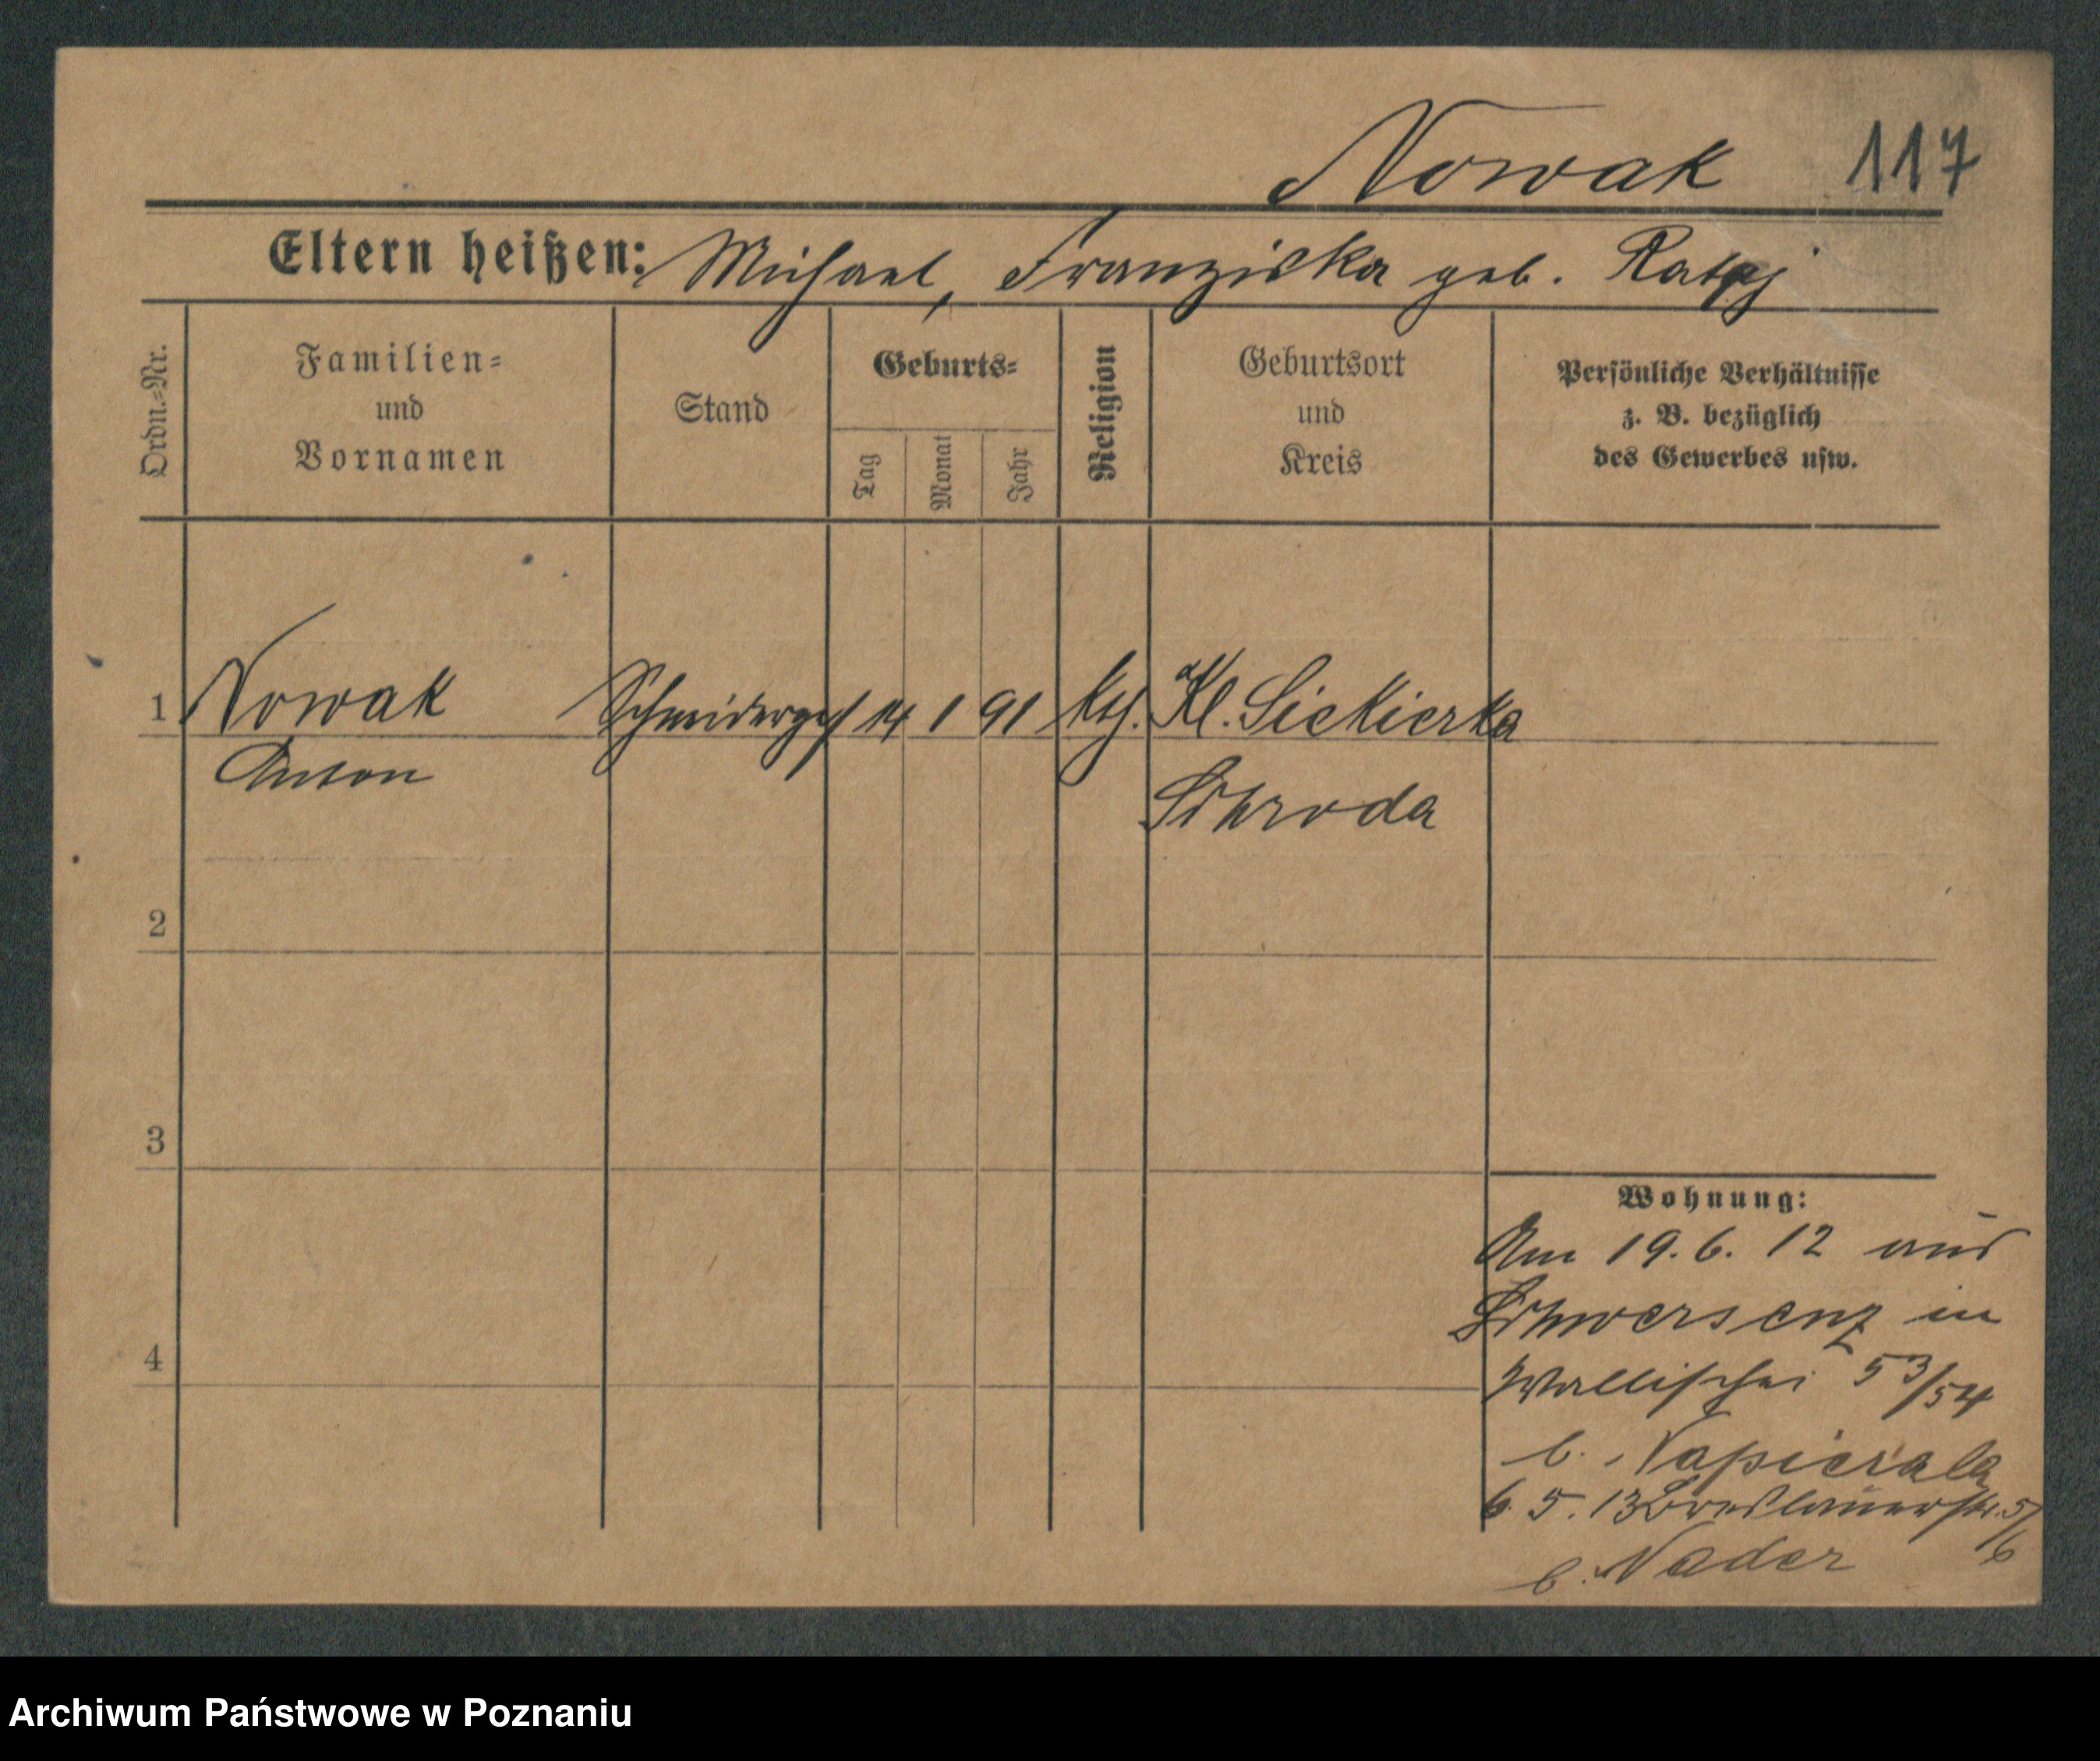 Nowak 117
Eltern heißen: Michael, Franziska geb.
Ordn.-Nr.
Familien-
und
Vornamen
Stand
Geburts-
Tag
Monat
Jahr
Religion
Geburtsort
und
Kreis
Persönliche Verhältnisse
z. B. bezüglich
des Gewerbes usw.
1 Nowak Schneiderges 14 1 91 kth. Kl. Siekierka
Anton
Schroda
2
3
4
Wohnung:
Am 19. 6. 12 aus
Schwersenz in
Wallischei 53/54
b. Napierala
6. 5. 13 Breslauerstr. 5/6
b. Nader
Archiwum Państwowe w Poznaniu